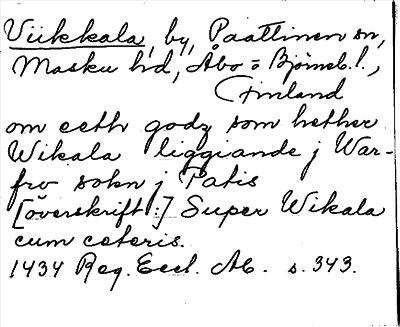 Viikkala, by, Paattinen sn,
Masku hd, Åbo o Björneb. l.,
Finland
om eeth godz som hether
Wikala liggiande j War-
frv sokn j Patis
[överskrift:] Super Wikala
cum ceteris.
1434 Reg. Eccl. Ab. s. 343.